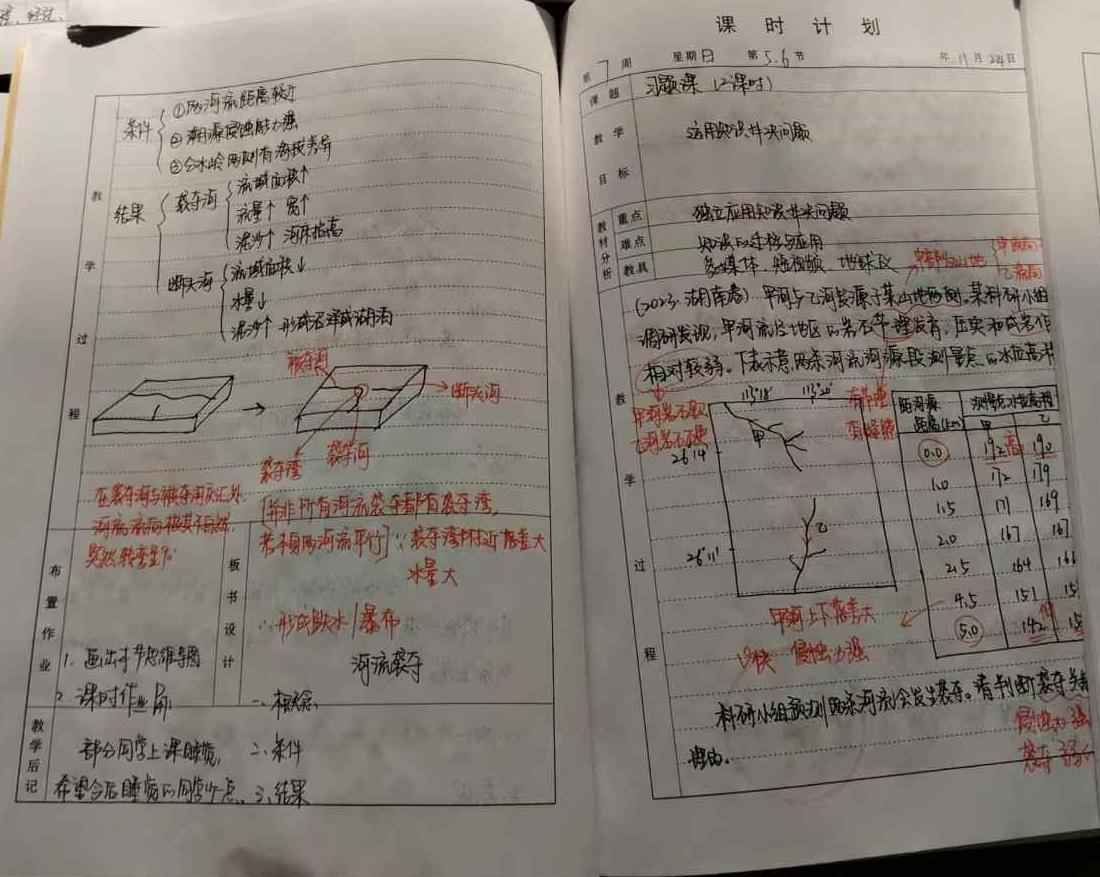 条件
①两河流距离较近
②溯源侵蚀能力强
③分水岭两侧有海拔差异
结果
袭夺河
流域面积↑
流量↑ 宽↑
泥沙↑ 河床抬高
断头河
流域面积↓
水量↓
泥沙↑ 形成沼泽或湖泊
教学过程
被夺河
断头河
袭夺湾
袭夺河
在袭夺河与被夺河交汇处
河流流向
突然转变
[并非所有河流袭夺都有袭夺湾,
若不是两河流平行]
∵袭夺湾附近落差大
水量大
∴形成跌水/瀑布
布置作业
1. 画出本节思维导图
2. 课时作业
板书设计
河流袭夺
一、概念
二、条件
三、结果
教学后记
部分同学上课睡觉,
希望今后睡觉的同学少点.
课时计划
第7周 星期日 第5.6节 年11月24日
课题 习题课 (2课时)
教学目标
运用知识解决问题
教材分析
重点 独立应用知识解决问题
难点 知识的迁移与应用
教具 多媒体、短视频、地球仪
教学过程
(2023·湖南卷) 甲河与乙河发源于某山地两侧。某科研小组
调研发现,甲河流经地区的岩石节理发育,压实和成岩作
相对较弱。下表示意两条河流河源段测量点的水位高
甲河岩石
乙河岩石
有节理
113°18′ 113°20′
26°14′
26°11′
甲
乙
距河源距离(km) 测量点水位高程
甲 乙
0.0 192 高 190
1.0 172 179
1.5 171 169
2.0 167 167
2.5 164 166
4.5 151 15
5.0 142 低 15
甲河上下落差大
快 侵蚀力强
科研小组预测两条河流会发生袭夺。请判断袭夺
理由.
侵蚀力强
袭夺